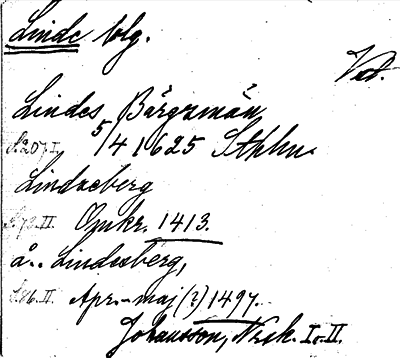 Linde blg.
Vsl.
Lindes Bärgzmän
S. 207. I. 5/4 1625 Sthlm.
Lindzeberg
S. 72. II. Omkr. 1413.
å.. Lindesberg,
S. 86. II. Apr.-maj (?) 1497.
Johansson, Nsk. I o. II.